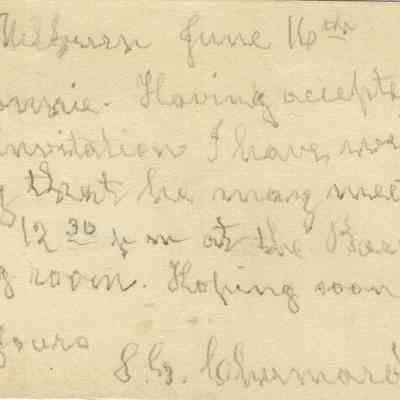 Milburn June 16th
onnie. Having accepte
invitation I have wr
g that he may meet
12 30 p m at the Bar
g room. Hoping soon
Yours
S. G. Chumard